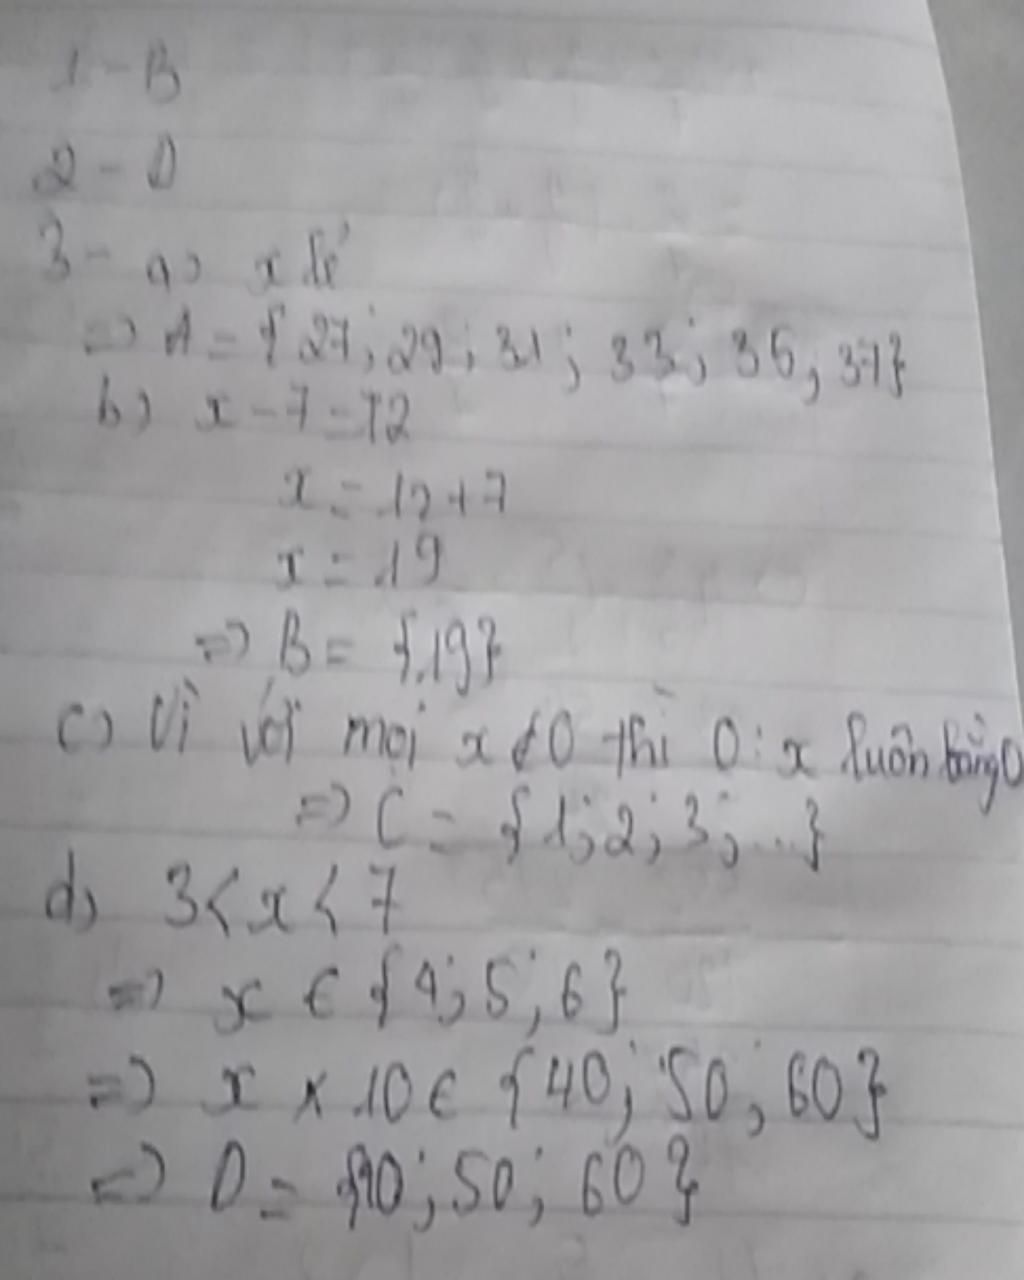 1 - B
2 - D
3 - a) x lẻ
=> A = {27; 29; 31; 33; 35; 37}
b) x - 7 = 12
x = 12 + 7
x = 19
=> B = {19}
c) Vì với mọi x ≠ 0 thì 0 : x luôn bằng 0
=> C = {1; 2; 3; ...}
d) 3 < x < 7
=> x ∈ {4; 5; 6}
=> x × 10 ∈ {40; 50; 60}
=> D = {40; 50; 60}